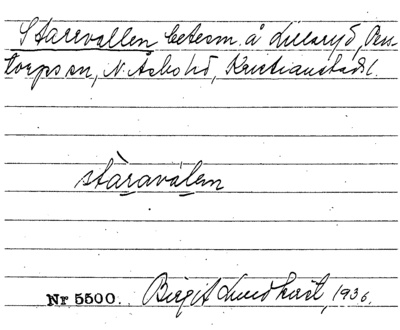 Starevallen betesm. å Lillaryd, Pers-
torps sn, N. Åsbo hd, Kristianstads l.
stàravàlen
Nr 5500. Birgit Lundkvist, 1936.